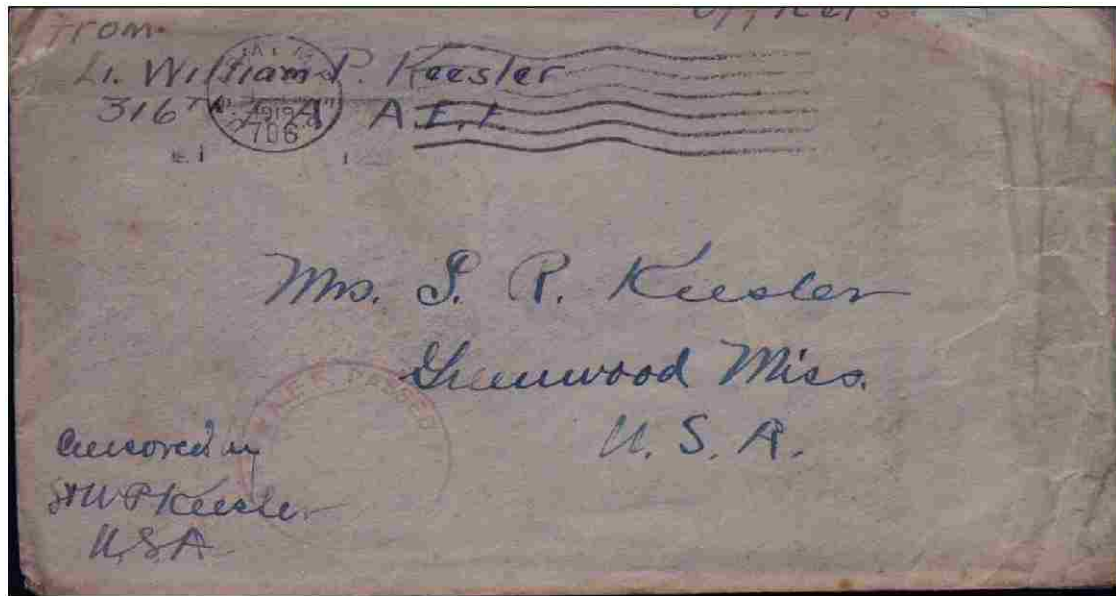 Officers
From.
Lt. William P. Keesler
316th F.A. A.E.F
1919
706
Mrs. S. P. Keesler
Greenwood Miss.
U. S. A.
A.E.F. PASSED
Censored by
Lt W P Keesler
U.S.A